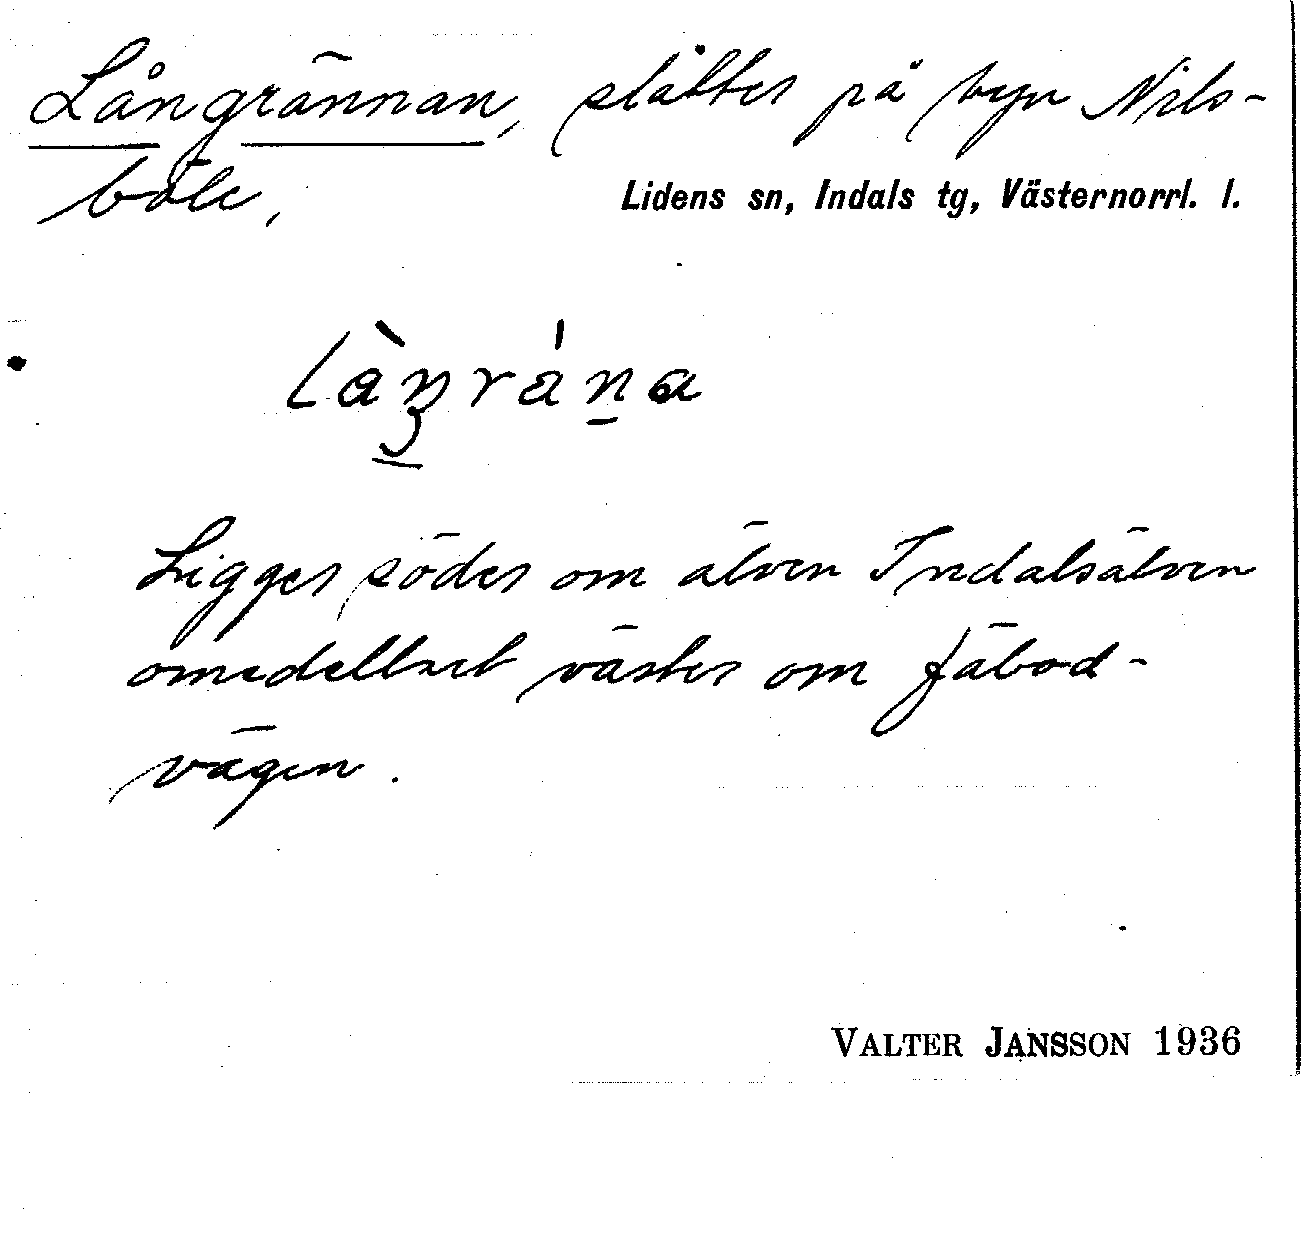 Långrännan, slåtter på byn Nils-
böle,
Lidens sn, Indals tg, Västernorrl. l.
Ligger söder om älven Indalsälven
omedelbart väster om fäbod-
vägen.
VALTER JANSSON 1936